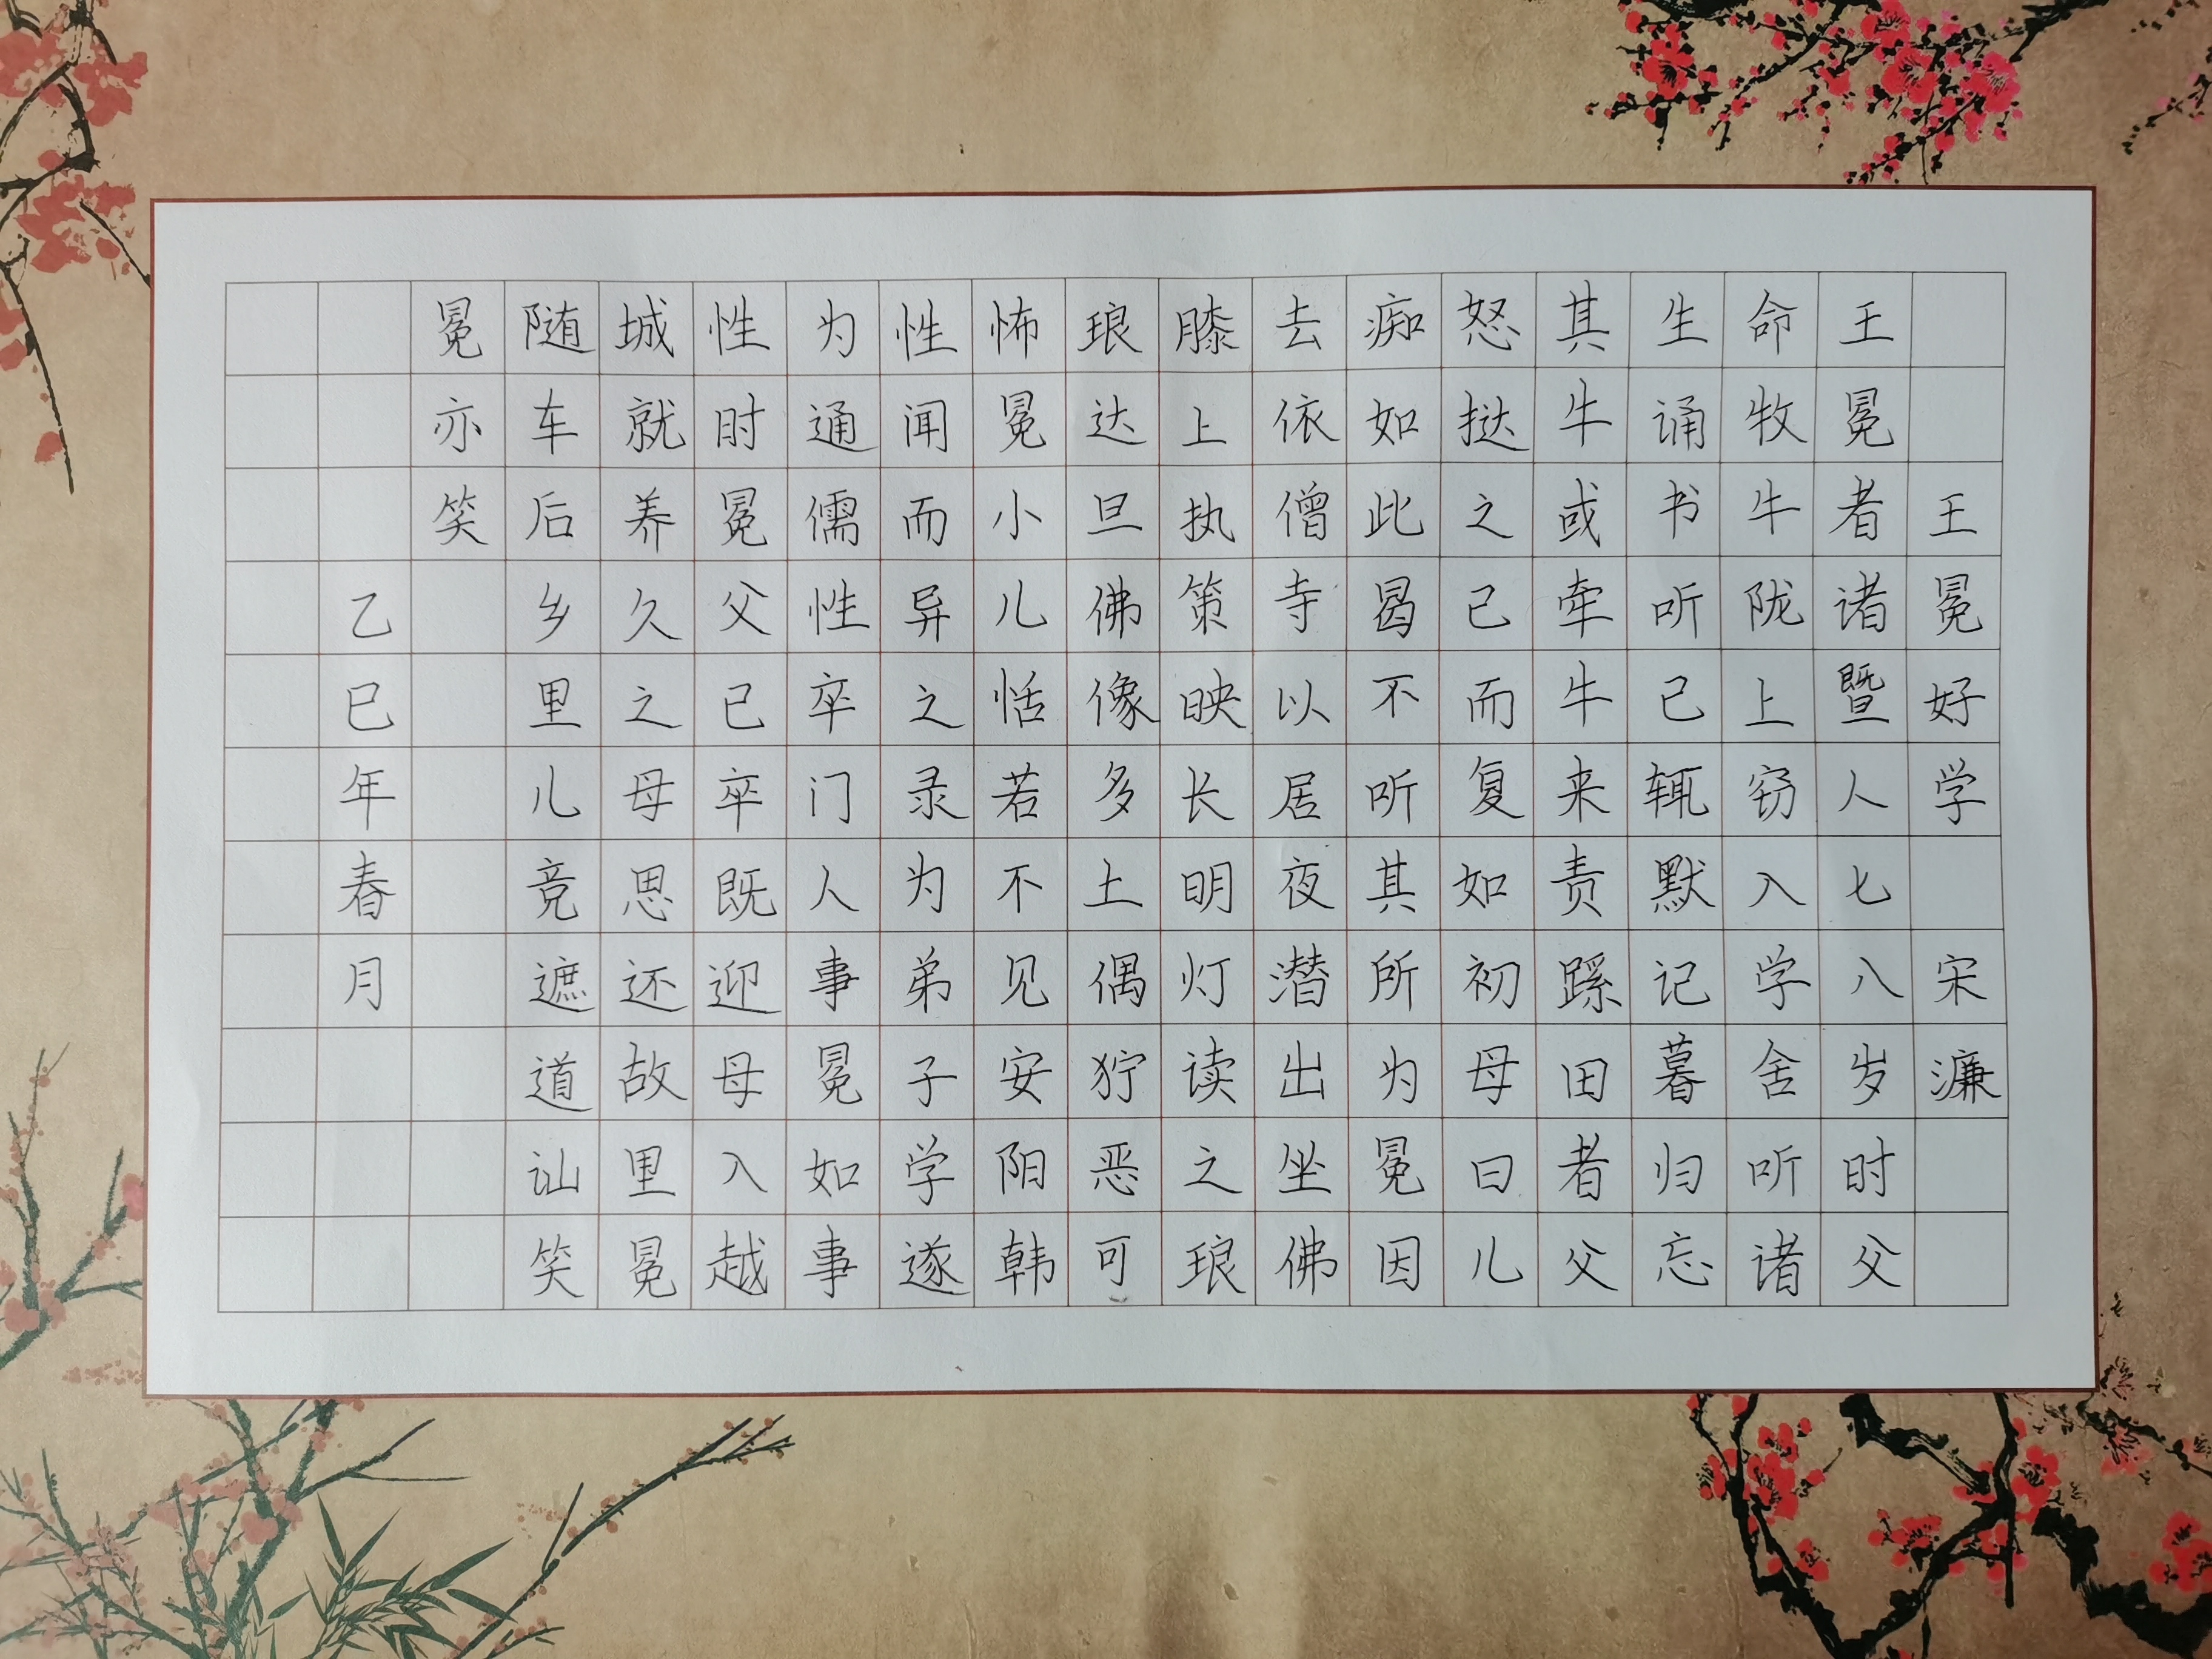 王冕好学 宋濂
王冕者诸暨人七八岁时父
命牧牛陇上窃入学舍听诸
生诵书听已辄默记暮归忘
其牛或牵牛来责蹊田者父
怒挞之已而复如初母曰儿
痴如此曷不听其所为冕因
去依僧寺以居夜潜出坐佛
膝上执策映长明灯读之琅
琅达旦佛像多土偶狞恶可
怖冕小儿恬若不见安阳韩
性闻而异之录为弟子学遂
为通儒性卒门人事冕如事
性时冕父已卒既迎母入越
城就养久之母思还故里冕
随车后乡里儿竞遮道讪笑
冕亦笑
乙巳年春月